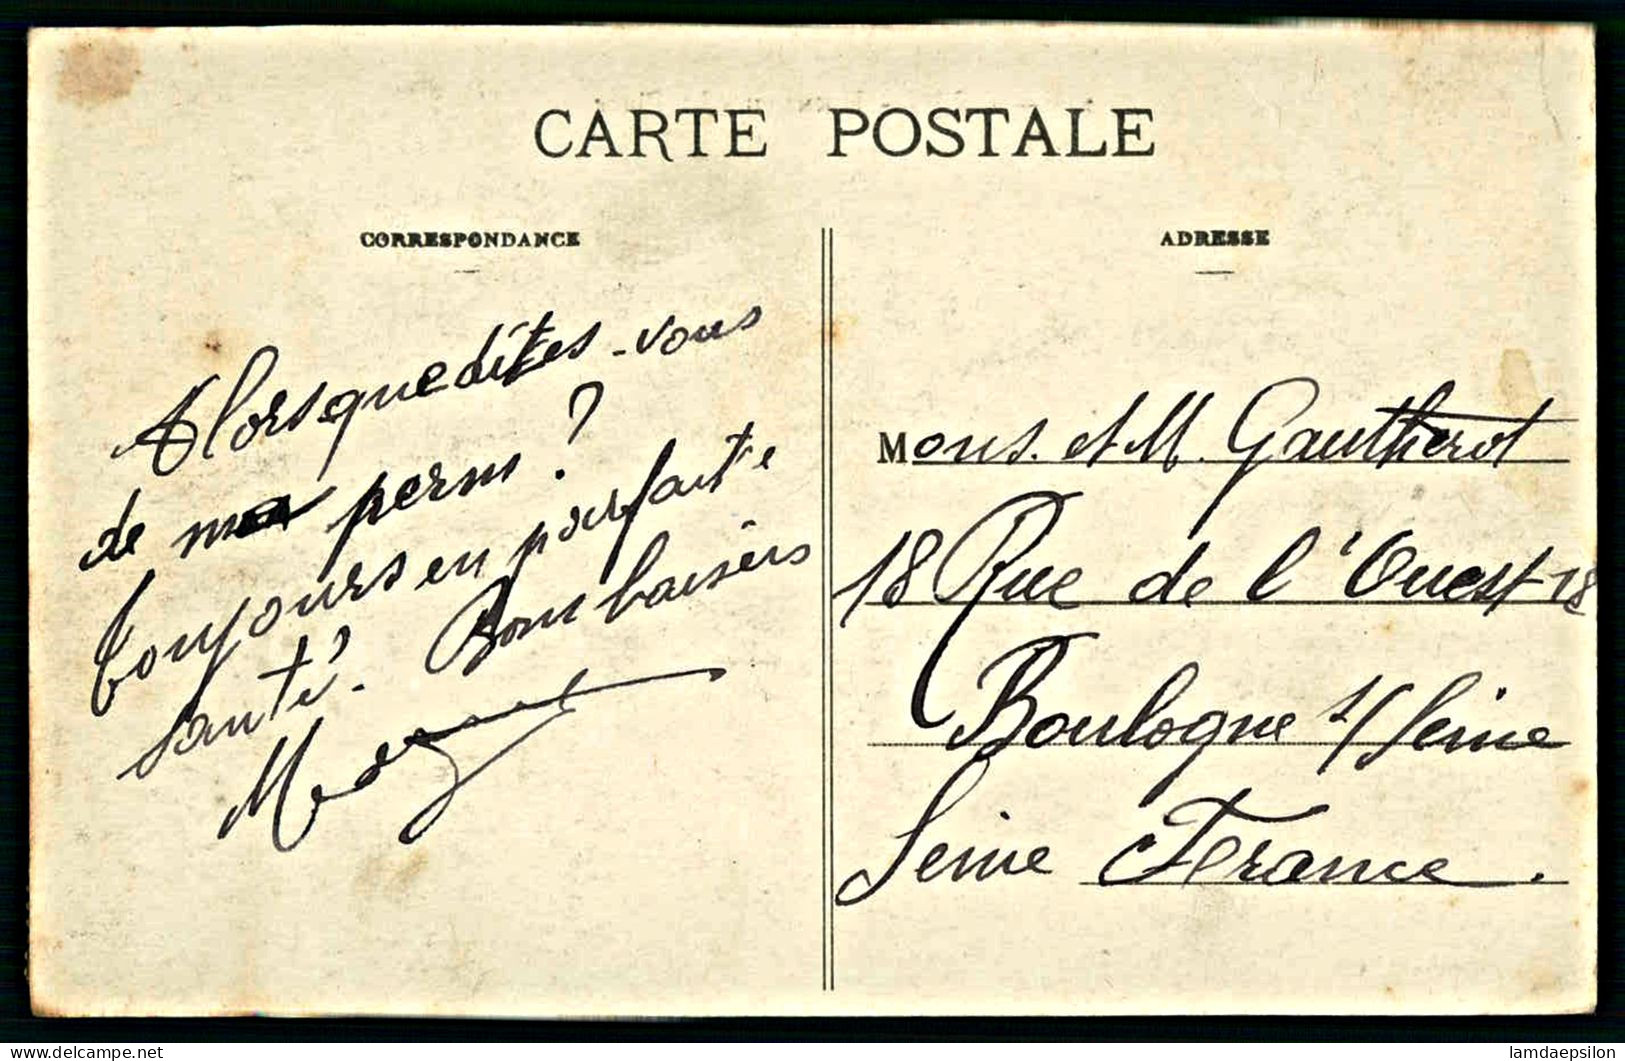 CARTE POSTALE
CORRESPONDANCE
ADRESSE
Alors que dites-vous
de ma perm ?
toujours en parfaite
santé. Bons baisers
Mons. et M. Gautherot
18 Rue de l'Ouest 18
Boulogne s/ Seine
Seine France.
delcampe.net
lamdaepsilon